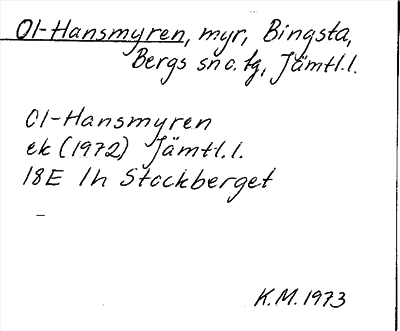 Ol-Hansmyren, myr, Bingsta,
Bergs sn o. tg, Jämtl.l.
Ol-Hansmyren
ek (1972) Jämtl.l.
18E 1h Stockberget
K.M. 1973